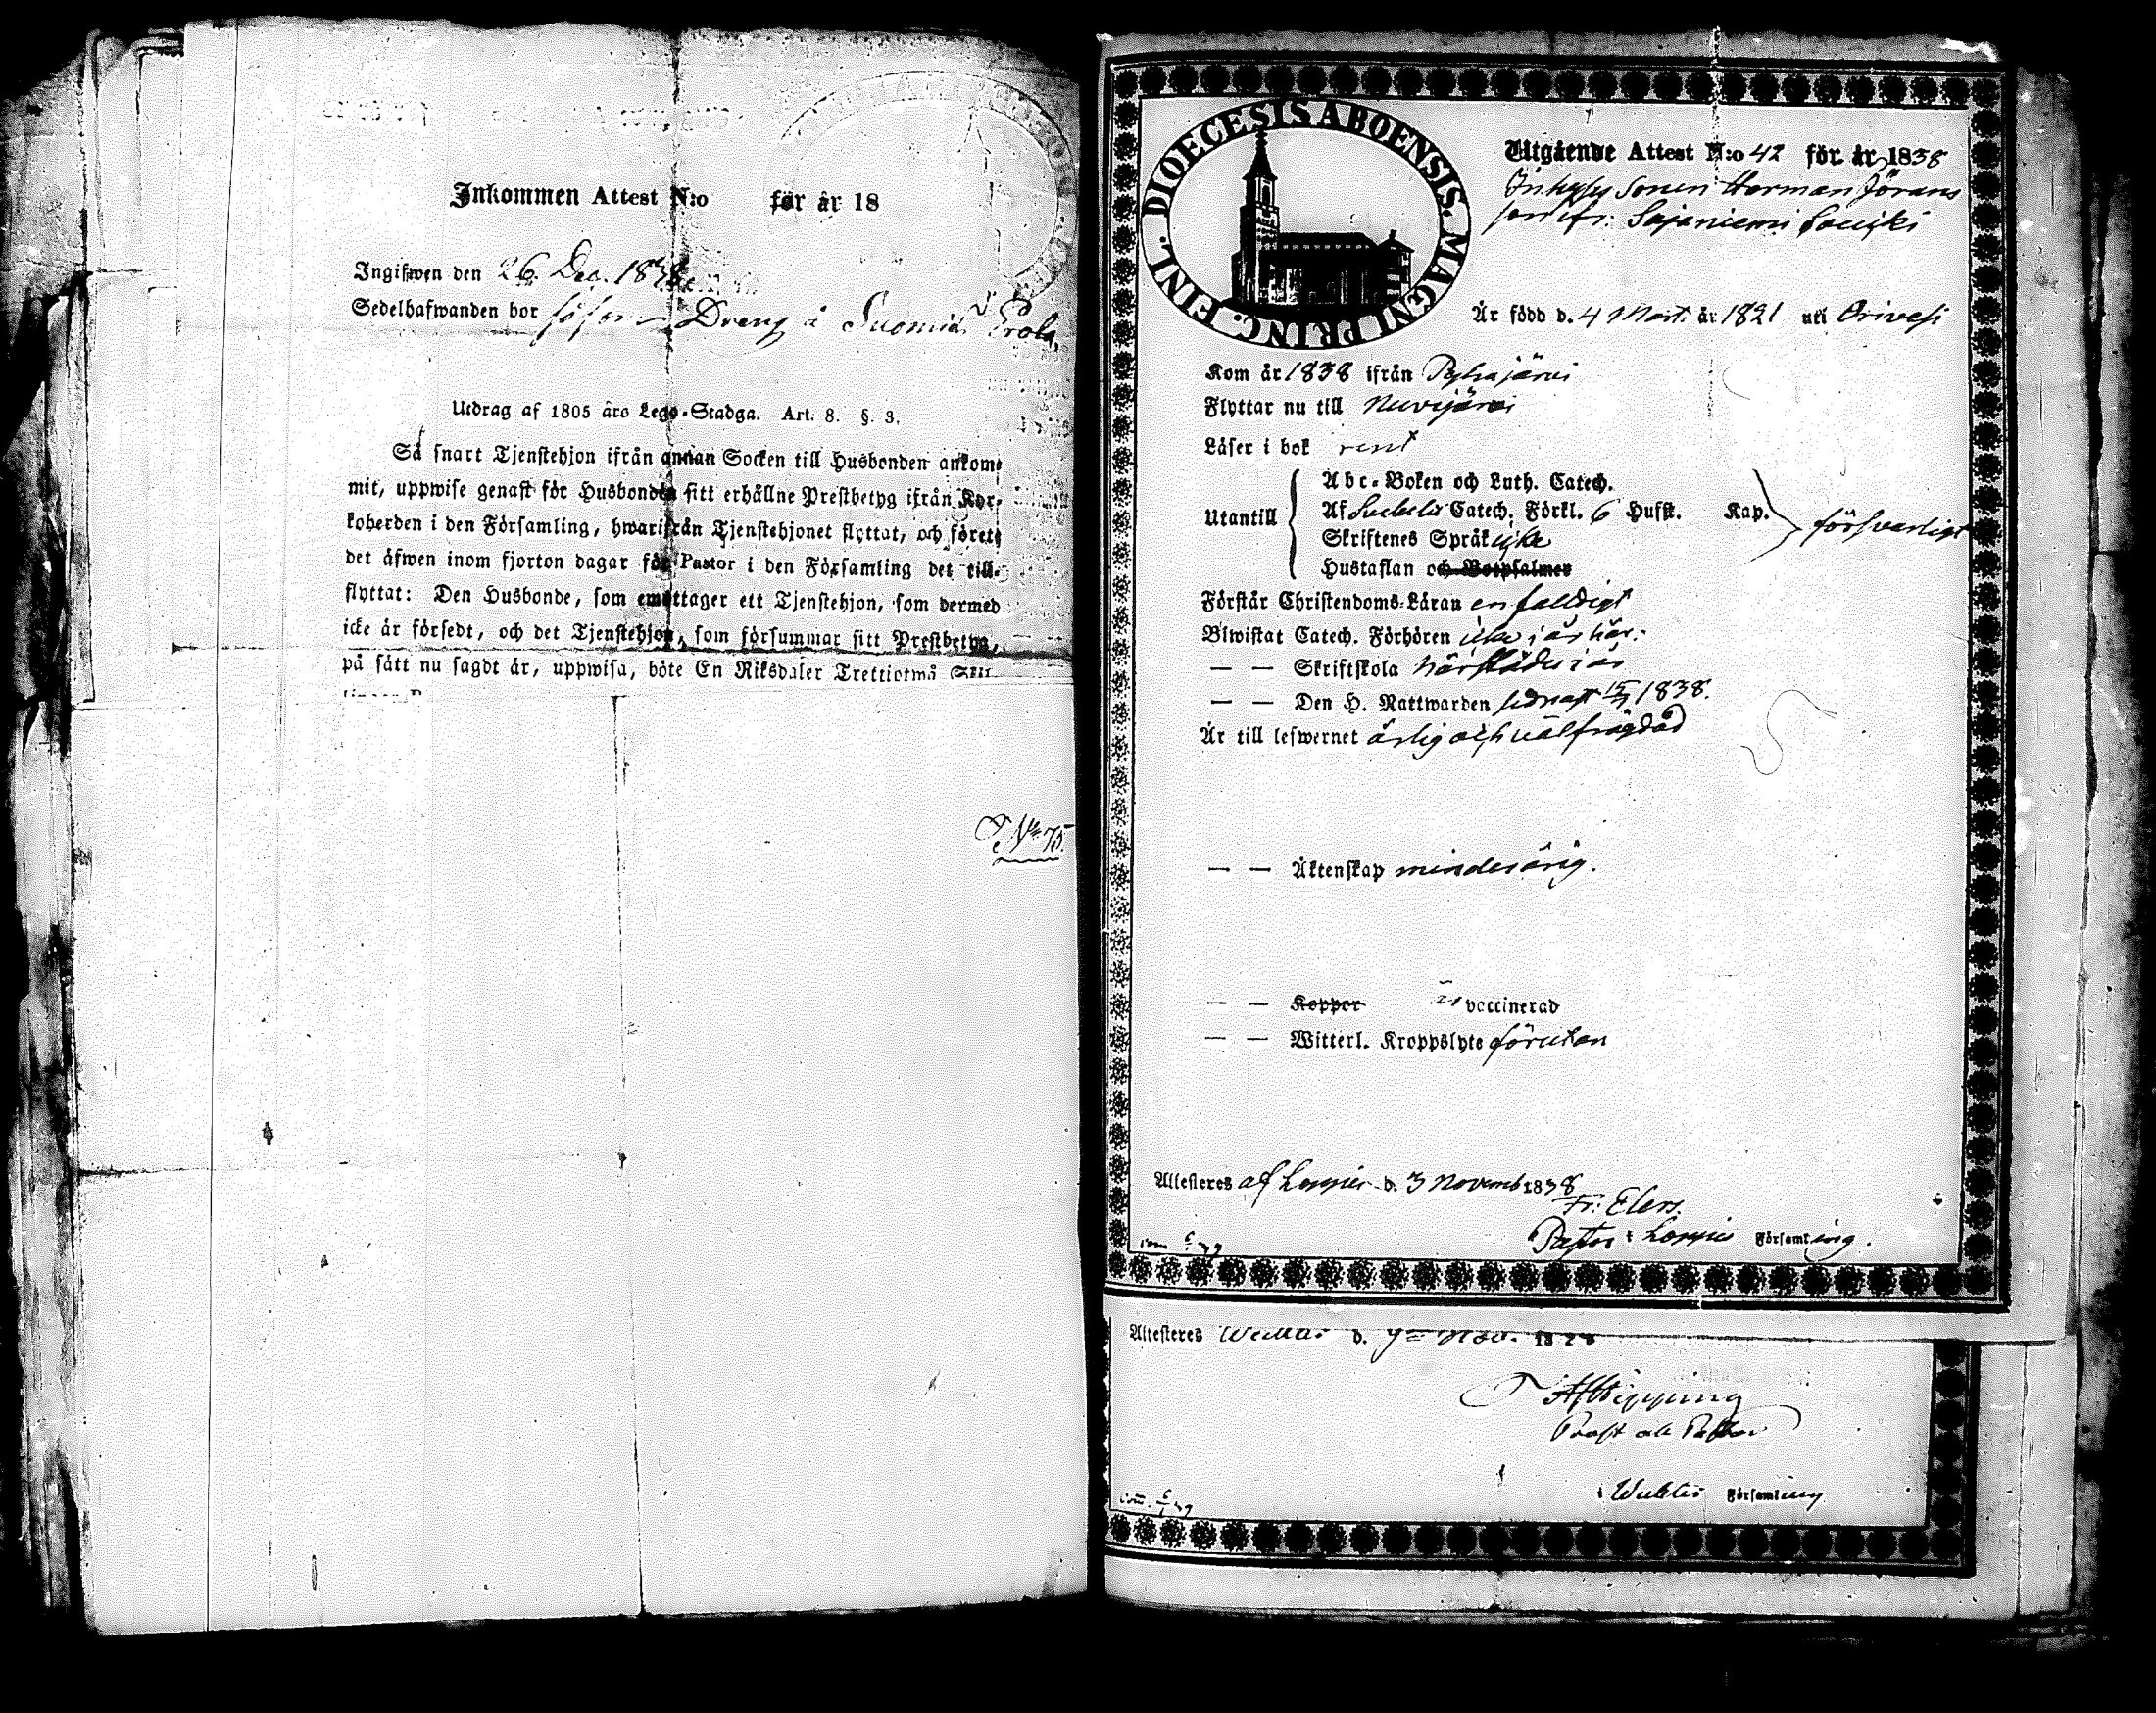 Inkommen Attest N:o för år 18
Ingifwen den 26. Dec. 1838
Sedelhafwanden bor såsom Dreng å Suomia Erola
Utdrag af 1805 års Lego-Stadga. Art. 8. §. 3.
Så snart Tjenstehjon ifrån annan Socken till Husbonden ankom-
mit, uppwise genast för Husbonden sitt erhållne Prestbetyg ifrån Kyr-
koherden i den Församling, hwarifrån Tjenstehjonet flyttat, och förete
det äfwen inom fjorton dagar för Pastor i den Församling det till-
flyttat: Den Husbonde, som emottager ett Tjenstehjon, som dermed
icke är försedt, och det Tjenstehjon, som försummar sitt Prestbetyg,
på sätt nu sagdt är, uppwisa, böte En Riksdaler Trettiotwå Skil-
N:o 75.
DIOECESIS ABOENSIS. MAGNI PRINC. FINL.
Utgående Attest N:o 42 för år 1838
Inhyses Sonen Herman Jörans
son ifr: Sajaniemi
Är född d. 4 Mart: år 1821 uti Orivesi
Kom år 1838 ifrån Pyhajärvi
Flyttar nu till
Läser i bok rent
Utantill
Abc-Boken och Luth. Catech.
Af Svebelii Catech. Förkl. 6 Hufst. Kap. försvarligt
Skriftenes Språk icke
Hustaflan och Botpsalmer
Förstår Christendoms-Läran enfalldigt
Biwistat Catech. Förhören icke i år här.
— — Skriftskola härstädes i år
— — Den H. Nattwarden sednast 15/7 1838.
Är till lefwernet ärlig och välfrägdad
— — Äktenskap minderårig.
— — Koppor är vaccinerad
— — Witterl. Kroppslyte förutan
Attesteres af Loppis d. 3 Novemb 1838
Fr: Elers.
Pastor i Loppis Församling.
Attesteres d. 9 Nov. 18
Prost och Pastor
i Församling